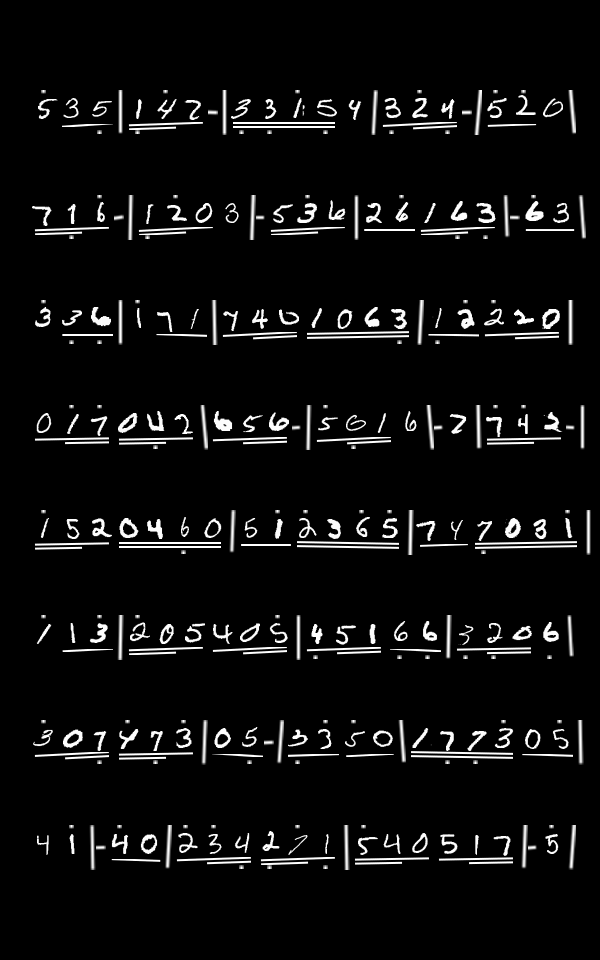 535|142-|331154|324-|520|
716-|1203|-536|26163|-63|
336|171|7401063|12220|
017042|656-|5016|-2|742-|
1520460|512365|747031|
113|205405|45166|3206|
307473|05-|3350|177305|
41|-40|234271|540517|-5|